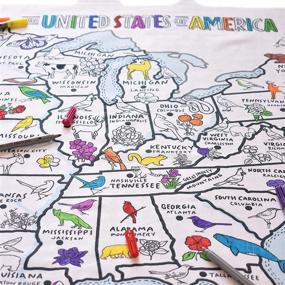 THE UNITED STATES OF AMERICA
MICHIGAN
WISCONSIN
MADISON
MICHIGAN
LANSING
PENNSYLVANIA
ILLINOIS
INDIANA
OHIO
COLUMBUS
WEST VIRGINIA
CHARLESTON
VIRGINIA
KENTUCKY
FRANKFORT
NASHVILLE
TENNESSEE
GREAT SMOKY MOUNTAINS
MISSISSIPPI
JACKSON
ALABAMA
MONTGOMERY
GEORGIA
ATLANTA
SOUTH CAROLINA
COLUMBIA